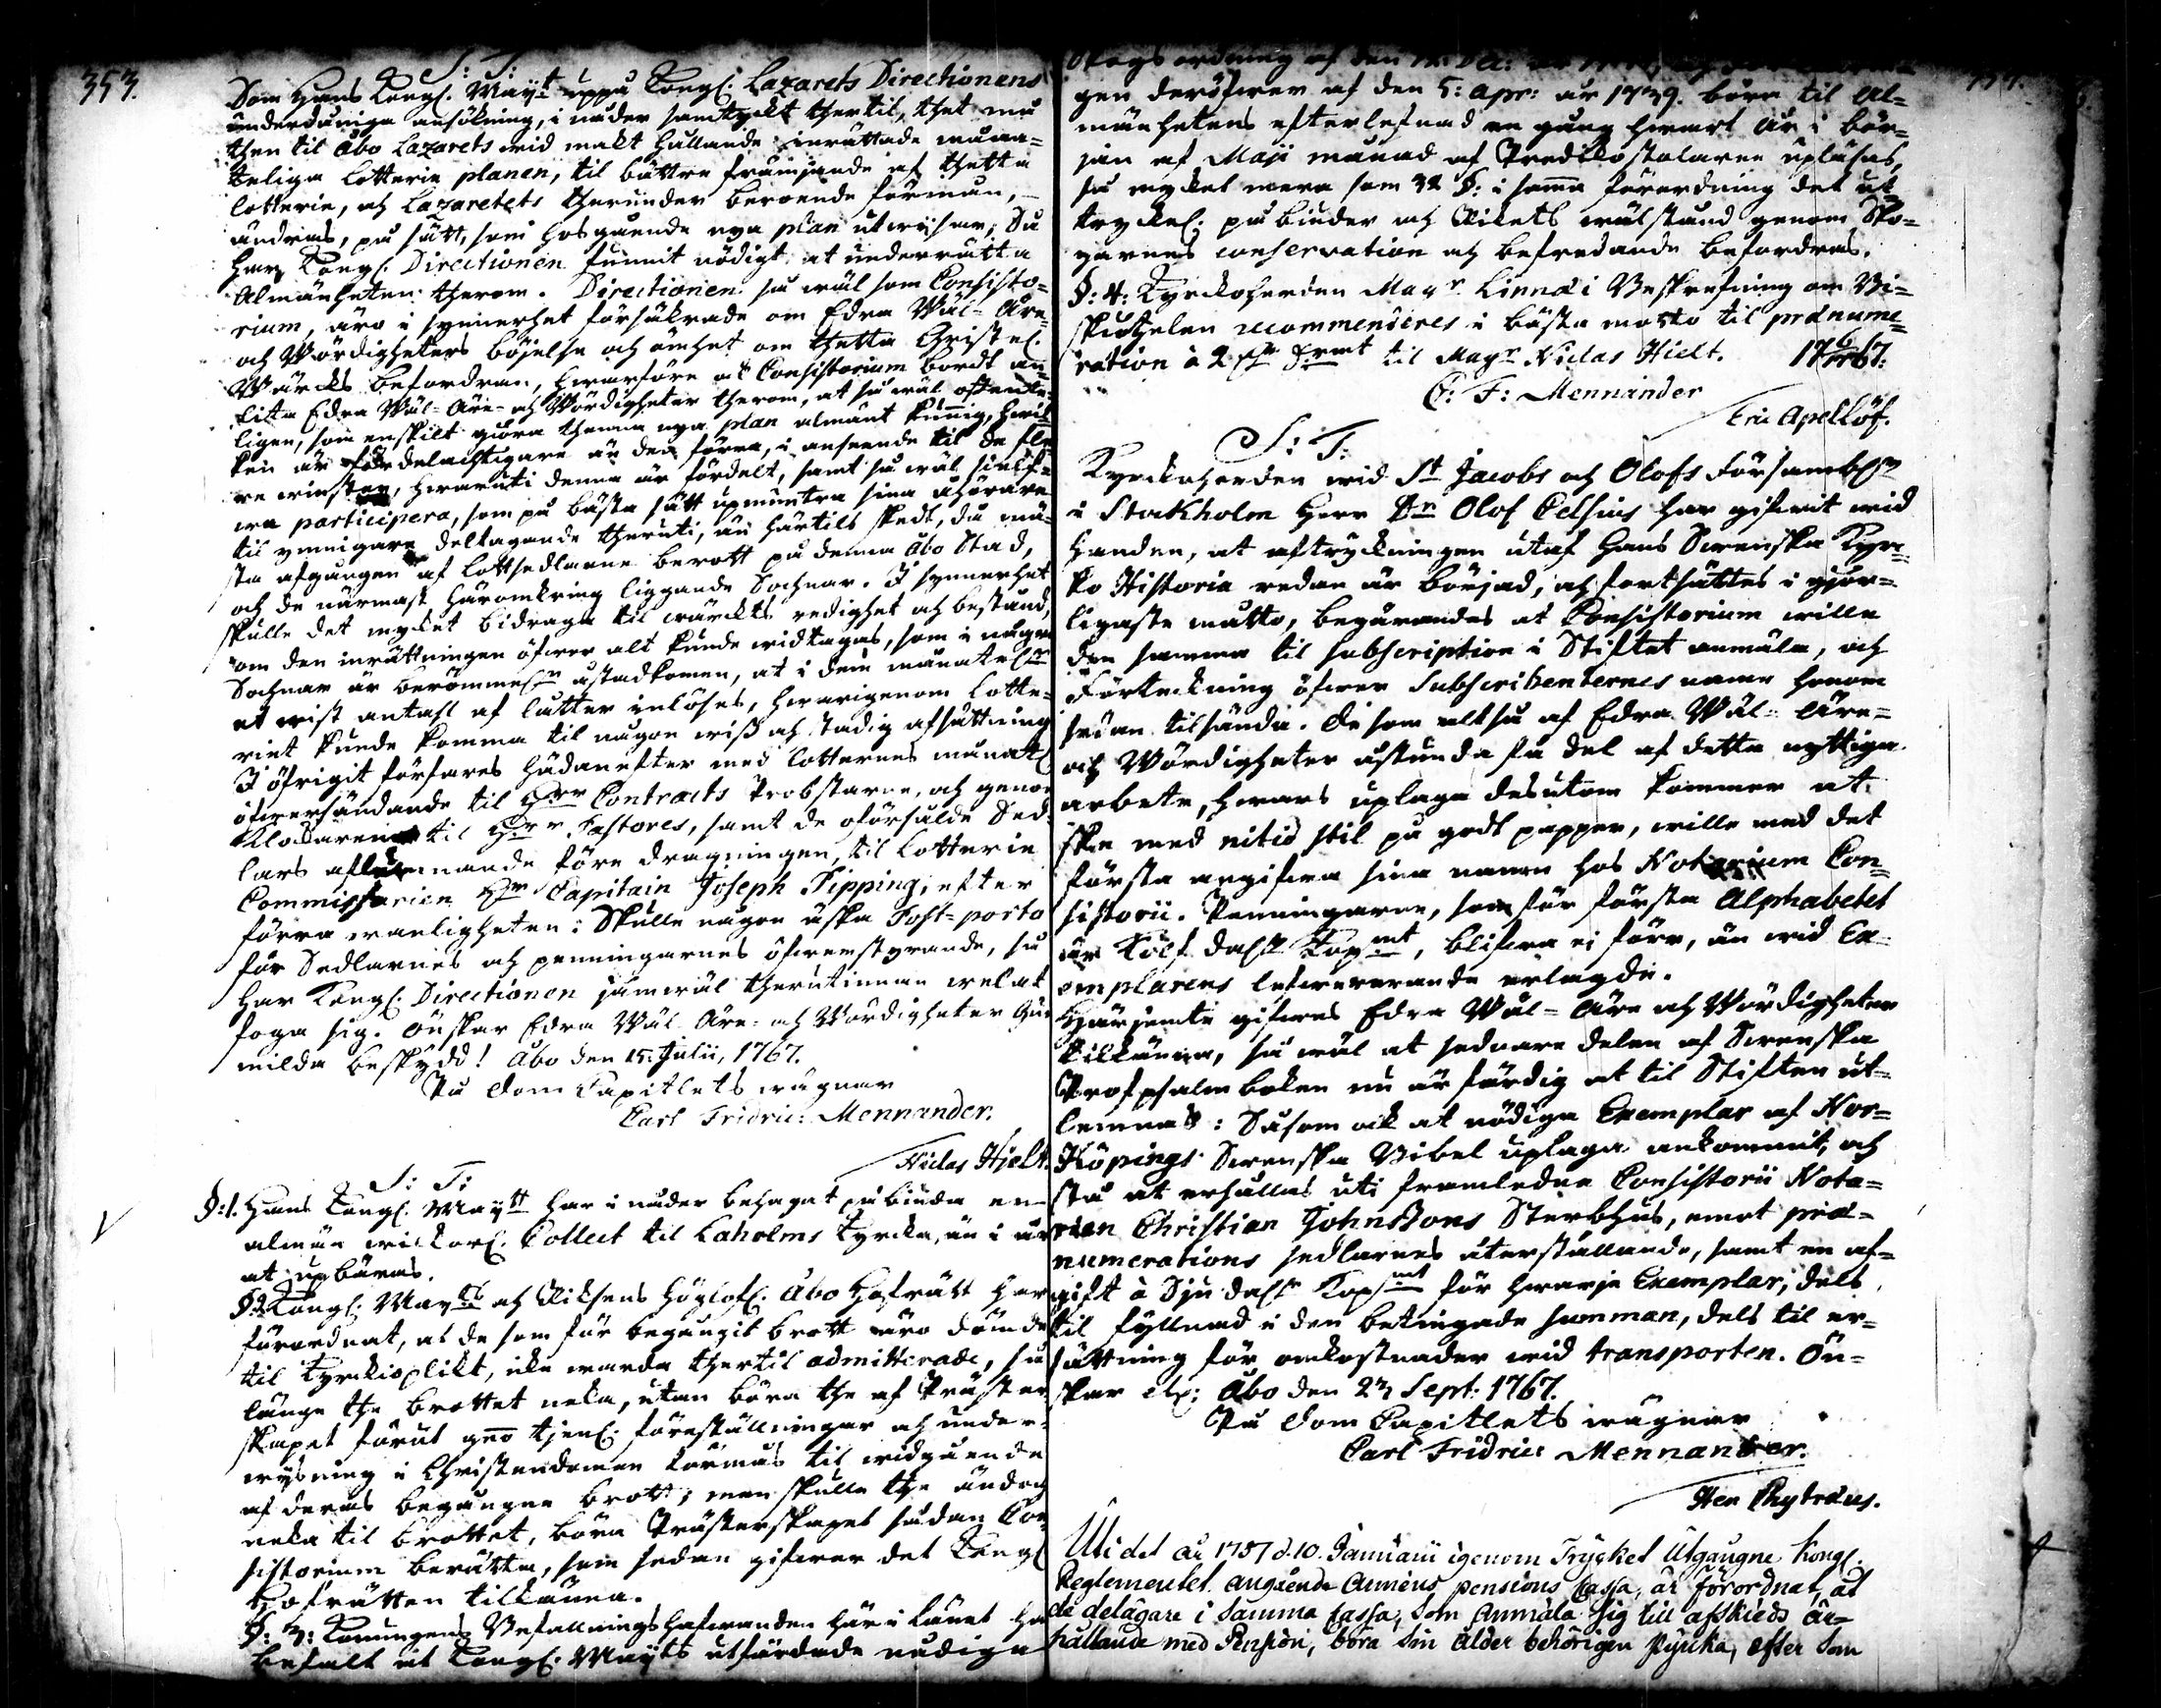 353.
S: T:
Som Hans Kongl. Mayt uppå Kongl. Lazarets Directionens
underdåniga ansökning, i nåder samtyckt thertil, thet må
then til Åbo Lazarets wid makt hållande inrättade måna-
teliga lotterie planen, til bättre främjande af thetta
lotterie, och Lazaretets therunder beroende förmån,
ändras, på sätt, som hosgående nya plan utwisar; Så
har Kongl. Directionen funnit nödigt at underrätta
Almänheten therom. Directionen så wäl som Consisto-
rium, äro i synnerhet försäkrade om Edra Wäl-Äre-
och Wördigheters böjelse och ömhet om thetta Christel.
Wärcks befordran, hwarföre ock Consistorium bordt an-
lita Edra Wäl-Äre- och Wördigheter therom, at så wäl offente-
ligen, som enskilt giöra thenna nya plan almänt kunnig, hwil-
ken är fördelachtigare än den förra, i anseende til de fle-
re winster, hwaruti denna är fördelt, samt så wäl sielf-
wa participera, som på bästa sätt upmuntra sina åhörare
til ymnigare deltagande theruti, än härtils skedt, då mä-
sta afgången af lottsedlarne berott på denna Åbo Stad,
och de närmast häromkring liggande Sochnar. I synnerhet
skulle det mycket bidraga til wärckets redighet och bestånd,
om den inrättningen öfwer alt kunde widtagas, som i några
Sochnar är berömmel. åstadkommen, at i dem månatel.
et wist antahl af lotter inlöses, hwarigenom lotte-
riet kunde komma til någon wiss och stadig afsättning
I öfrigit förfares hädanefter med lotternes månatl.
öfwersändande til Herr Contracts Probstarne, och genom
Klockarena til Herr Pastores, samt de oförsålde Sed-
lars aflemnande före dragningen, til Lotterie
Commissarien Hr Capitain Joseph Pipping, efter
förra wanligheten: Skulle någon äska Post-porto
för Sedlarnes och penningarnes öfwerstyrande, så
har Kongl. Directionen jämwäl therutinnan welat
foga sig. Önskar Edra Wäl Äre- och Wördigheter Gud
milda beskydd! Åbo den 15: Julii, 1767.
På Dom Capitlets wägnar
Carl Fridric: Mennander.
Niclas Hjelt.
S: T:
§:1. Hans Kongl. Mayts har i nåder behagat påbiuda en
almän wilkorl. Collect til Laholms Kyrcka, än i år
at upbäras.
§:2. Kongl. Mayts och Riksens Höglofl. Åbo Hofrätt har
förordnat, at de som för begångit brott äro dömde
til Kyrckioplikt, icke warda thertil admitterade, så
länge the brottet neka, utan böra the af Präster-
skapet förut geno tjenl. föreställningar och under-
wisning i Christendomen förmås til widgående
af deras begångne brott; men skulle the ändock
neka til brottet, böra Prästerskapet sådan Con-
sistorium berätta, som sedan gifwer det Kongl.
Hofrätten tillkänna.
§: 3: Konungens Befallningshafwanden här i Länet har
befalt at Kongl. Mayts utfärdade nådige
Skogs ordning af den
gen deröfwer af den 5: Apr: år 1739. böra til Al-
mänhetens efterlefnad en gång hwart år i bör-
jan af Maji månad af Predikostolarne upläsas,
så mycket mera som 32 §: i samma förordning det ut-
tryckel. påbiuder och Rikets wälstånd genom Sko-
garnes conservation och befredande befordras.
§: 4: Kyrckoherden Magr Linnæi Beskrifning om Bi-
skiötzelen recommenderes i bästa motto til prænume-
ration à 2 Dr Srmt til Magr Niclas Hielt. 17 67.
C: F: Mennander
Eric Apellöf.
S: T:
Kyrckoherden wid St Jacobs och Olofs Församblr
i Stockholm Herr Dr Olof Celsius har gifwit wid
handen, at aftryckningen utaf Hans Swenska Kyr-
ko Historia redan är börjad, och fortsättes i giör-
ligaste måtto, begärandes at Consistorium wille
den samma til subscription i Stiftet anmäla, och
Förteckning öfwer Subscribenternes namn honom
sedan tilsända. De som altså af Edra Wäl-Äre-
och Wördigheter åstunda få del af detta nyttiga
arbete, hwars uplaga dessutom kommer at
ske med nitid stil på godt papper, wille med det
första angifwa sina namn hos Notarium Con-
sistorii. Penningarne, som för första Alphabetet
är Tolf dahlr Kopmt, blifwa ei förr, än wid Ex-
emplarens lefwererande erlagde.
Härjemte gifwes Edra Wäl-Äre och Wördigheter
tilkänna, så wäl at sednare delen af Swenska
Profpsalmboken nu är färdig at til Stiften ut-
lemnas: Såsom ock at nödiga Exemplar af Nor-
Köpings Swenska Bibel uplaga ankommit, och
stå at erhållas uti framledne Consistorii Nota-
rien Christian Johnssons Sterbhus, emot præ-
numerations sedlarnes återställande, samt en af-
gift à Sju dahlr Kopmt för hwarje Exemplar, dels
til fyllnad i den betingade summan, dels til er-
sättning för omkostnader wid transporten. Ön-
skar etc: Åbo den 23 Sept: 1767.
På Dom Capitlets wägnar
Carl Fridric Mennander.
Sten Chytræus.
Uti det år 1757 d. 10. Januarii igenom Trycket Utgångne Kongl.
Reglementet angående Arméns pensions Cassa, är förordnat, at
de delägare i samma Cassa, som anmäla sig till afskieds er-
hållande med Pension, böra sin ålder behörigen styrcka, efter som